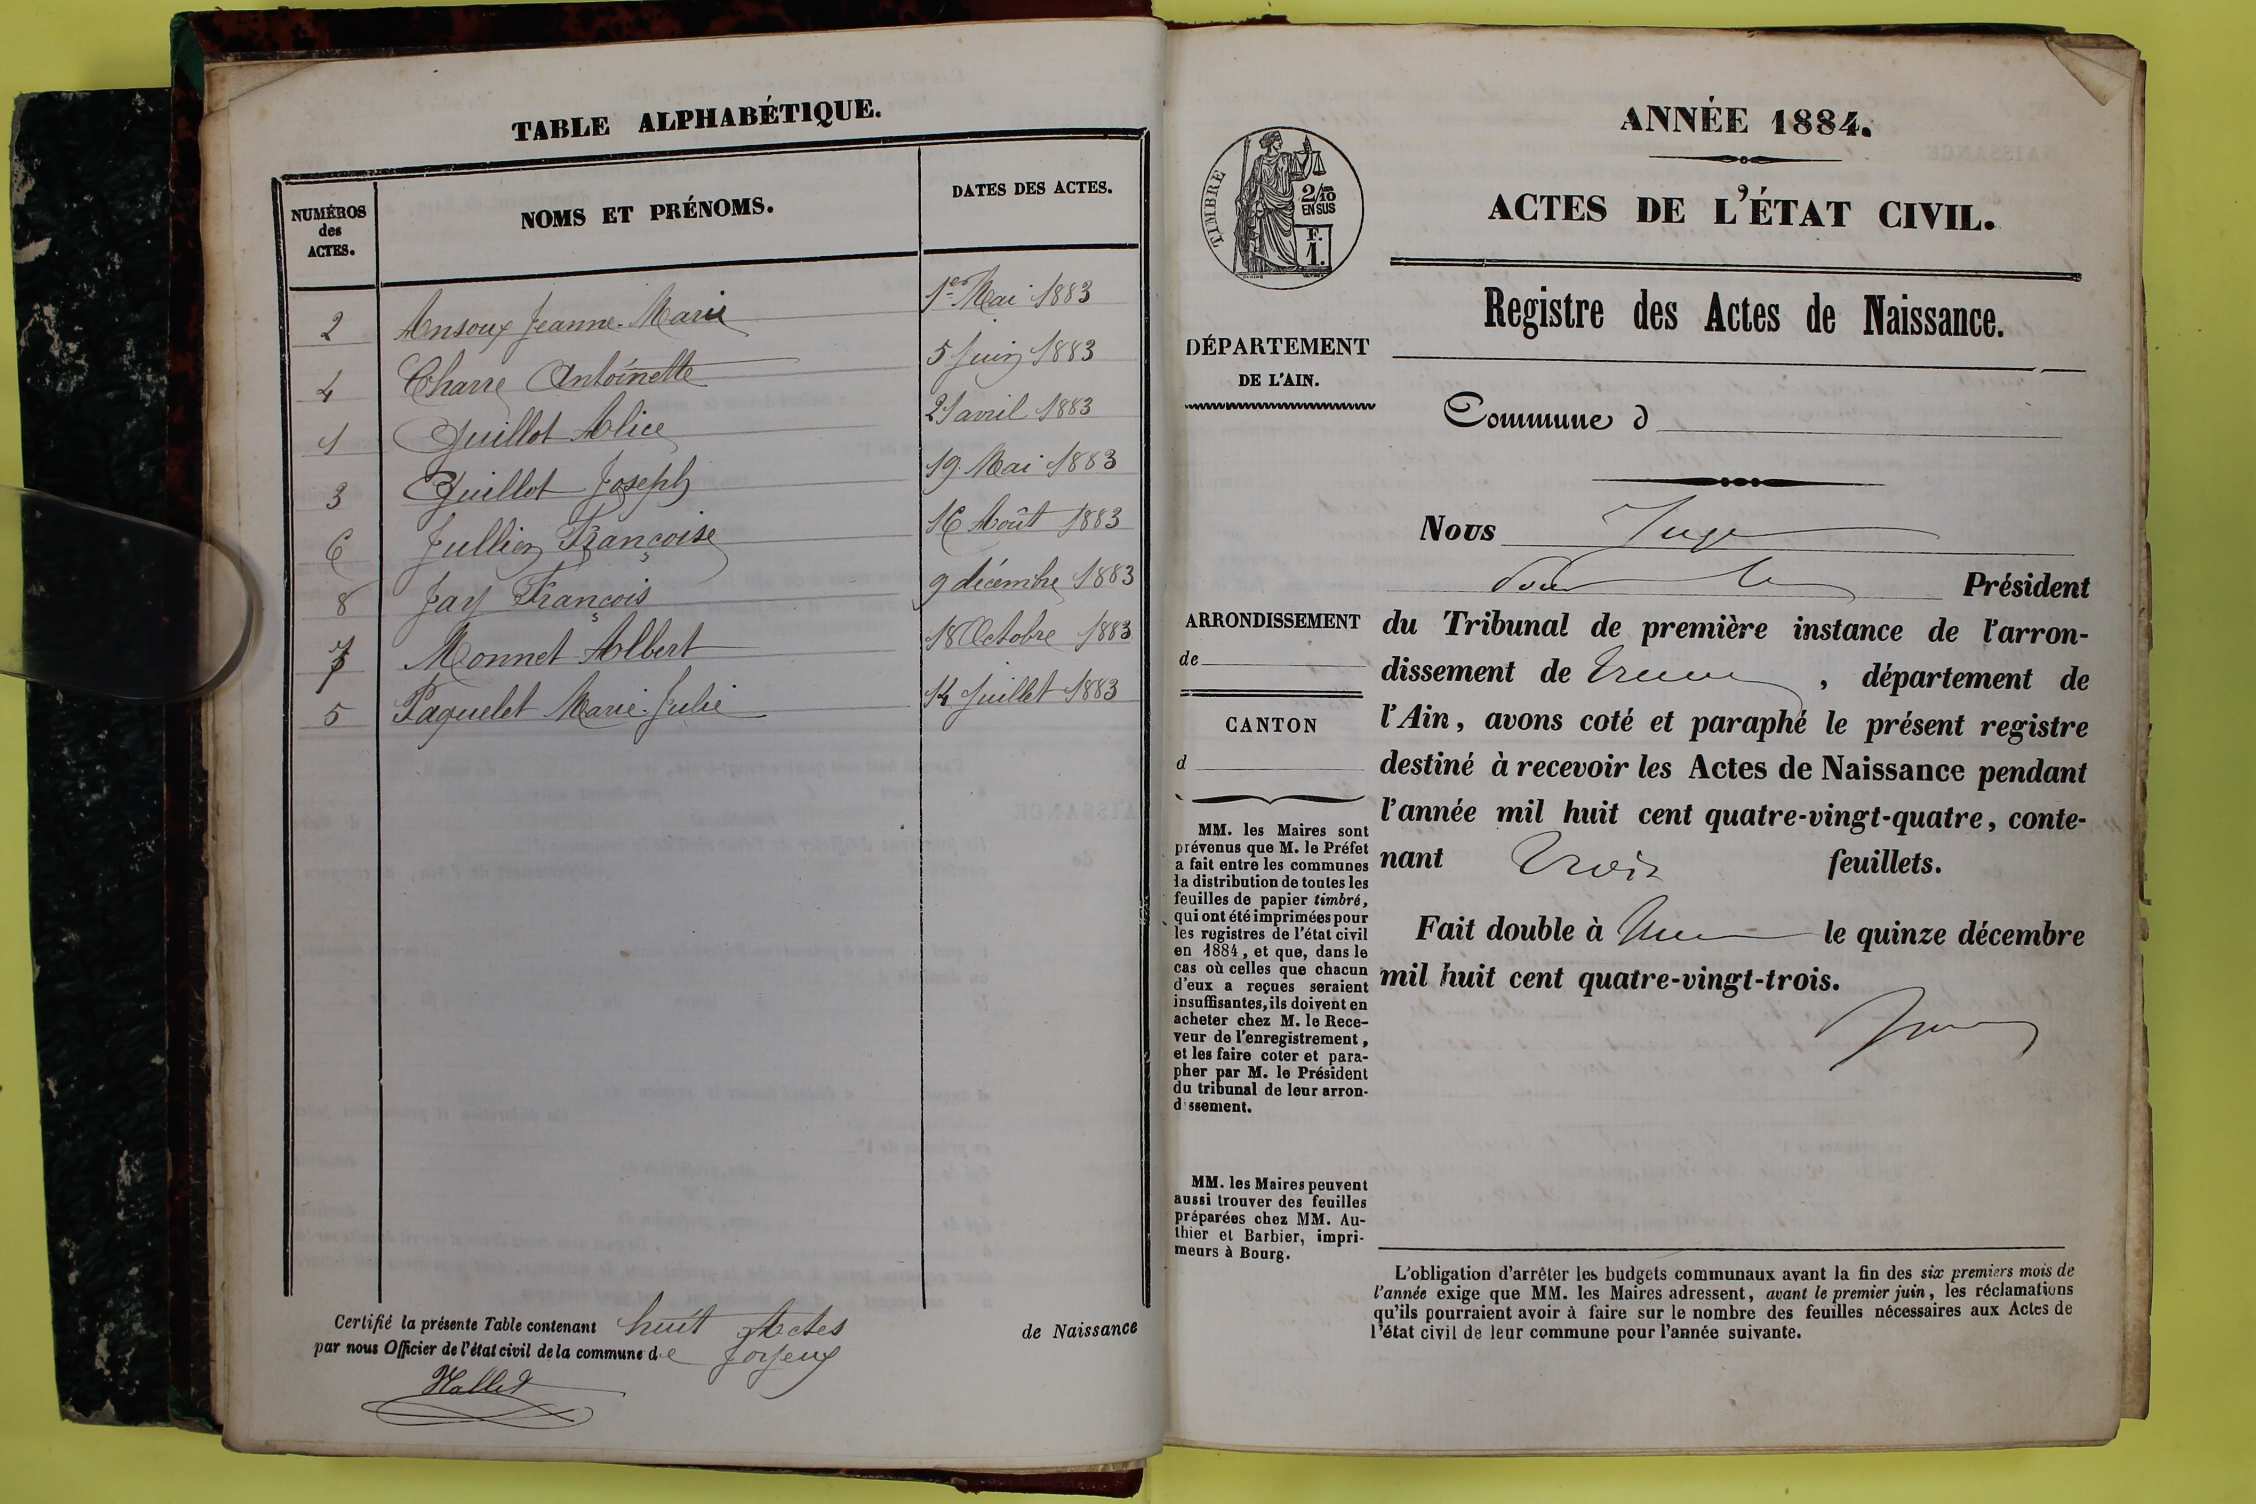 TABLE ALPHABÉTIQUE.
NUMÉROS des ACTES. NOMS ET PRÉNOMS. DATES DES ACTES.
2 Ansoux Jeanne-Marie 1er Mai 1883
4 Charre Antoinette 5 Juin 1883
1 Guillot Alice 21 avril 1883
3 Guillot Joseph 19 Mai 1883
6 Jullien Françoise 16 Août 1883
8 Jay François 9 décembre 1883
7 Monnet Albert 18 Octobre 1883
5 Paquelet Marie-Julie 14 Juillet 1883
Certifié la présente Table contenant huit Actes de Naissance
par nous Officier de l'état civil de la commune de Joyeux
ANNÉE 1884.
ACTES DE L'ÉTAT CIVIL.
TIMBRE
2/10
EN SUS
F.
1.
Registre des Actes de Naissance.
DÉPARTEMENT
DE L'AIN.
Commune d
Nous Juge
pour le Président
ARRONDISSEMENT
de
CANTON
d
du Tribunal de première instance de l'arron-
dissement de Trévoux, département de
l'Ain, avons coté et paraphé le présent registre
destiné à recevoir les Actes de Naissance pendant
l'année mil huit cent quatre-vingt-quatre, conte-
nant trois feuillets.
Fait double à le quinze décembre
mil huit cent quatre-vingt-trois.
MM. les Maires sont
prévenus que M. le Préfet
a fait entre les communes
la distribution de toutes les
feuilles de papier timbré,
qui ont été imprimées pour
les registres de l'état civil
en 1884, et que, dans le
cas où celles que chacun
d'eux a reçues seraient
insuffisantes, ils doivent en
acheter chez M. le Rece-
veur de l'enregistrement,
et les faire coter et para-
pher par M. le Président
du tribunal de leur arron-
dissement.
MM. les Maires peuvent
aussi trouver des feuilles
préparées chez MM. Au-
thier et Barbier, impri-
meurs à Bourg.
L'obligation d'arrêter les budgets communaux avant la fin des six premiers mois de
l'année exige que MM. les Maires adressent, avant le premier juin, les réclamations
qu'ils pourraient avoir à faire sur le nombre des feuilles nécessaires aux Actes de
l'état civil de leur commune pour l'année suivante.